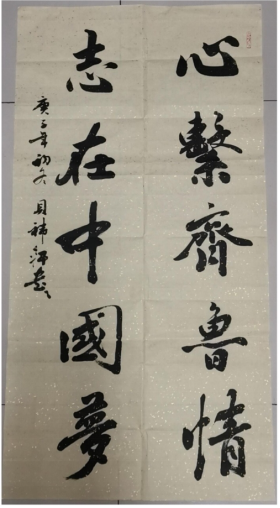 心繫齊魯情
志在中國夢
庚子年初冬